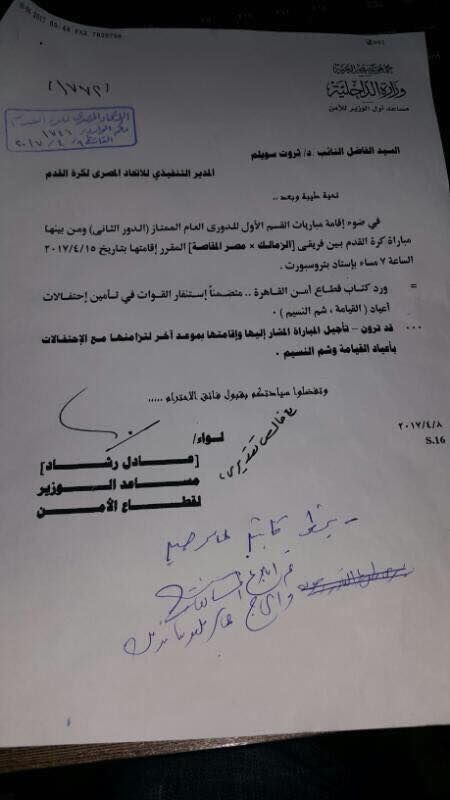 2017 05:44 FAX 7828756
جمهورية مصر العربية
وزارة الداخلية
مساعد أول الوزير للأمن
[١٧٧٢]
السيد الفاضل النائب .د/ ثروت سويلم
المدير التنفيذي للاتحاد المصرى لكرة القدم
تحية طيبة وبعد ..
في ضوء إقامة مباريات القسم الأول للدورى العام الممتاز (الدور الثانى) ومن بينها
مباراة كرة القدم بين فريقى [الزمالك × مصر المقاصة] المقرر إقامتها بتاريخ ٢٠١٧/٤/١٥
الساعة ٧ مساء بإستاد بتروسبورت .
= ورد كتاب قطاع أمن القاهرة .. متضمناً إستنفار القوات في تأمين إحتفالات
أعياد ( القيامة ، شم النسيم ) .
... قد ترون – تأجيل المباراة المشار إليها وإقامتها بموعد آخر لتزامنها مع الإحتفالات
بأعياد القيامة وشم النسيم .
وتفضلوا سيادتكم بقبول فائق الاحترام .....
٢٠١٧/٤/٨
S.16
لواء/
[عــادل رشــاد]
مساعد الــوزير
لقطاع الأمــن
مع خالص تقديرى،